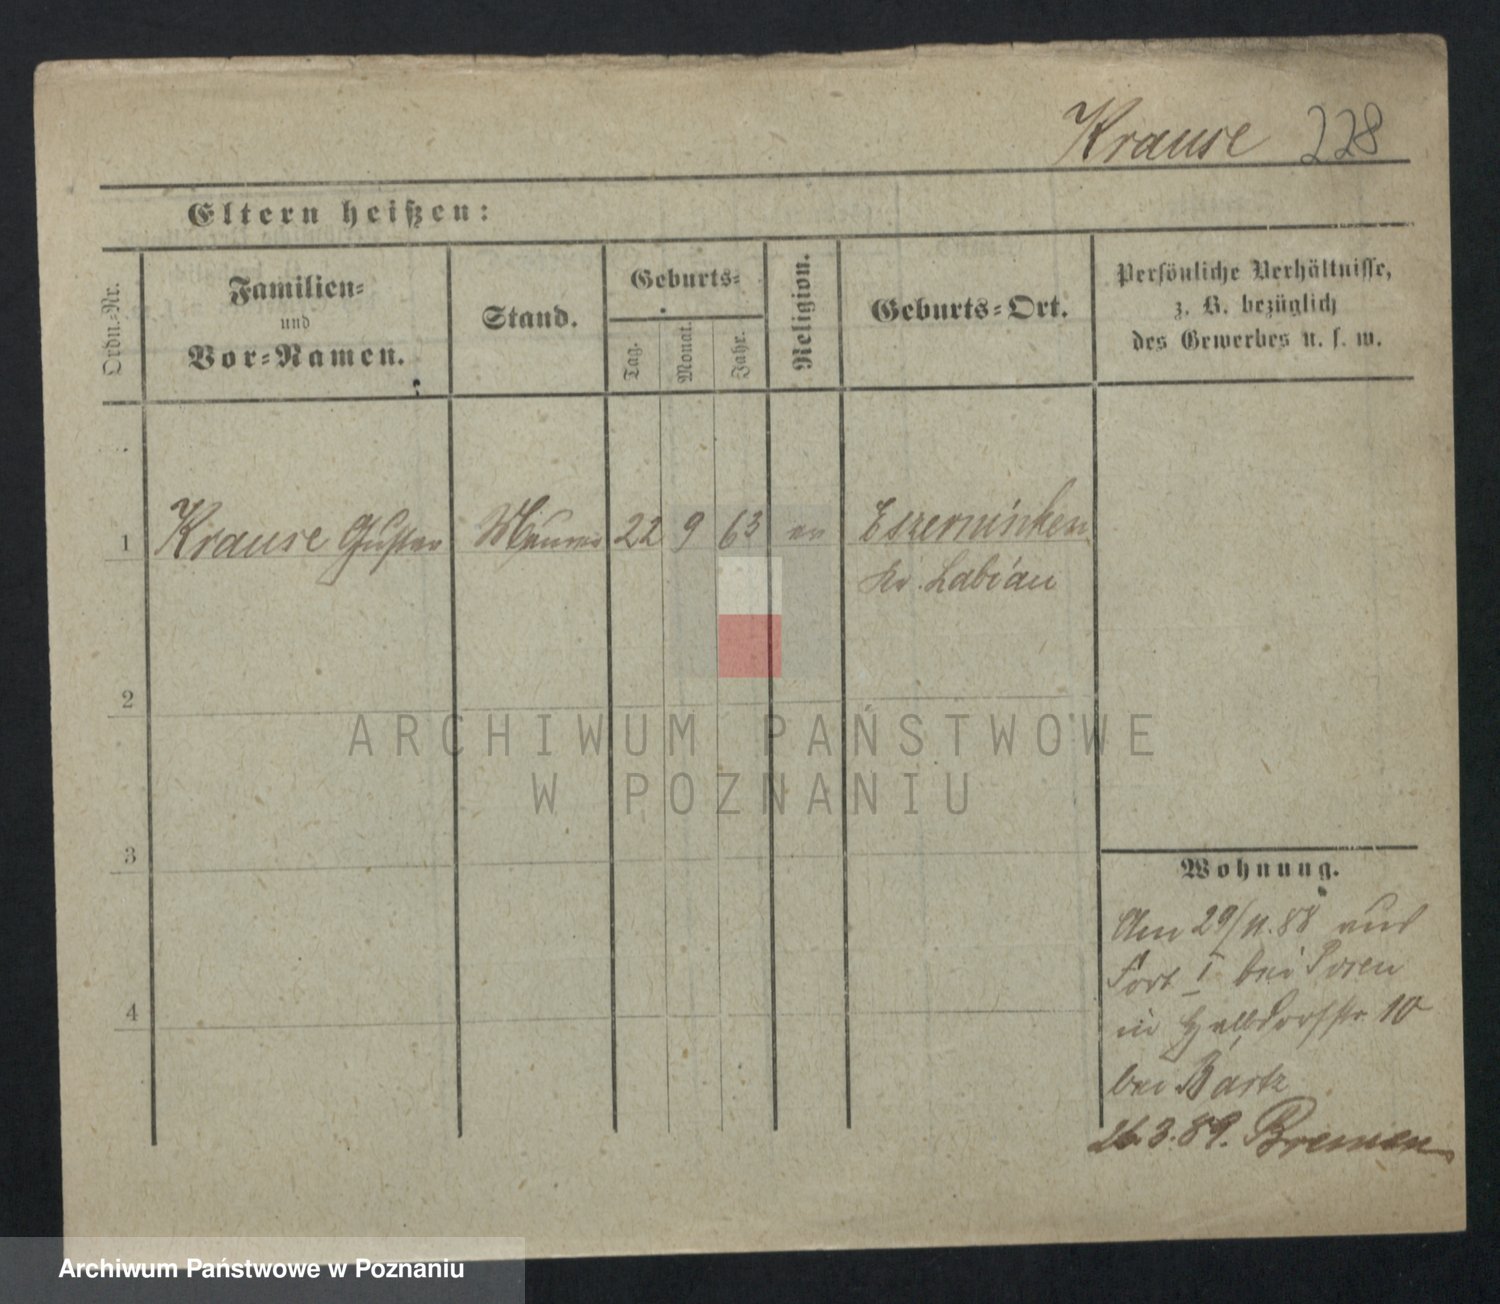 Krause 228
Eltern heißen:
Ordn.-Nr.
Familien-
und
Vor-Namen.
Stand.
Geburts-
Tag.
Monat.
Jahr.
Religion.
Geburts-Ort.
Persönliche Verhältnisse,
z. B. bezüglich
des Gewerbes u. s. w.
1 Krause Gustav Maurer 22 9 63 ev Eszerninken
Kr. Labiau
2
ARCHIWUM PAŃSTWOWE
W POZNANIU
3
Wohnung.
Am 29/11.88 aus
Fort I bei Posen
in Halbdorfstr 10
4
bei Bartz
26.3.89. Bremen
Archiwum Państwowe w Poznaniu